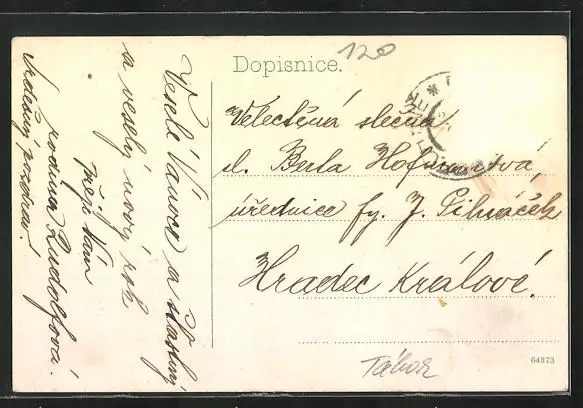 120
Dopisnice.
Veselé Vánoce a šťastný
a veselý nový rok
přeje Vám
rodina Rudolfova.
Srdečný pozdrav!
Velectěná slečna
sl. Berta Hofmanová,
úřednice fy. J.
Hradec Králové.
Tábor
64373